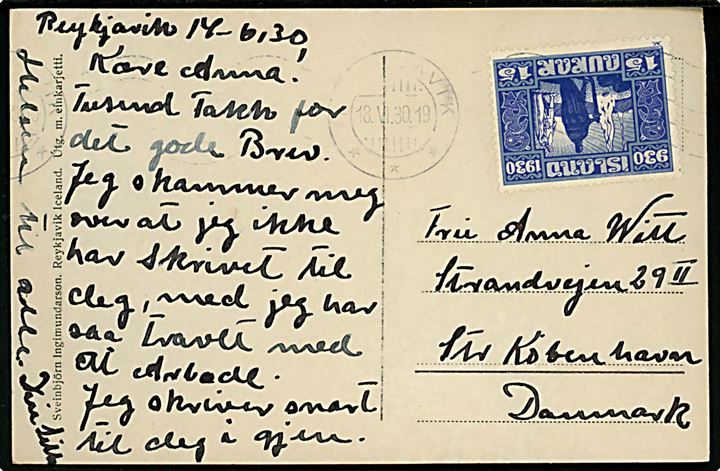 Reykjavik 14-6.30
Kære Anna!
Tusind Takk for
det gode Brev.
Jeg skammer meg
over at jeg ikke
har skrivet til
deg, med jeg har
saa travlt med
at Arbade.
Jeg skriver snart
til deg i gjen.
Helsen til alle.
Sveinbjörn Ingimundarson. Reykjavik Iceland. Utg. m. einkarjetti.
VÍK
18.VI.30.19
15 AURAR 15
ISLAND
930 1930
Frú Anna Witt
Strandvejen 29 II
Str Köbenhavn
Danmark